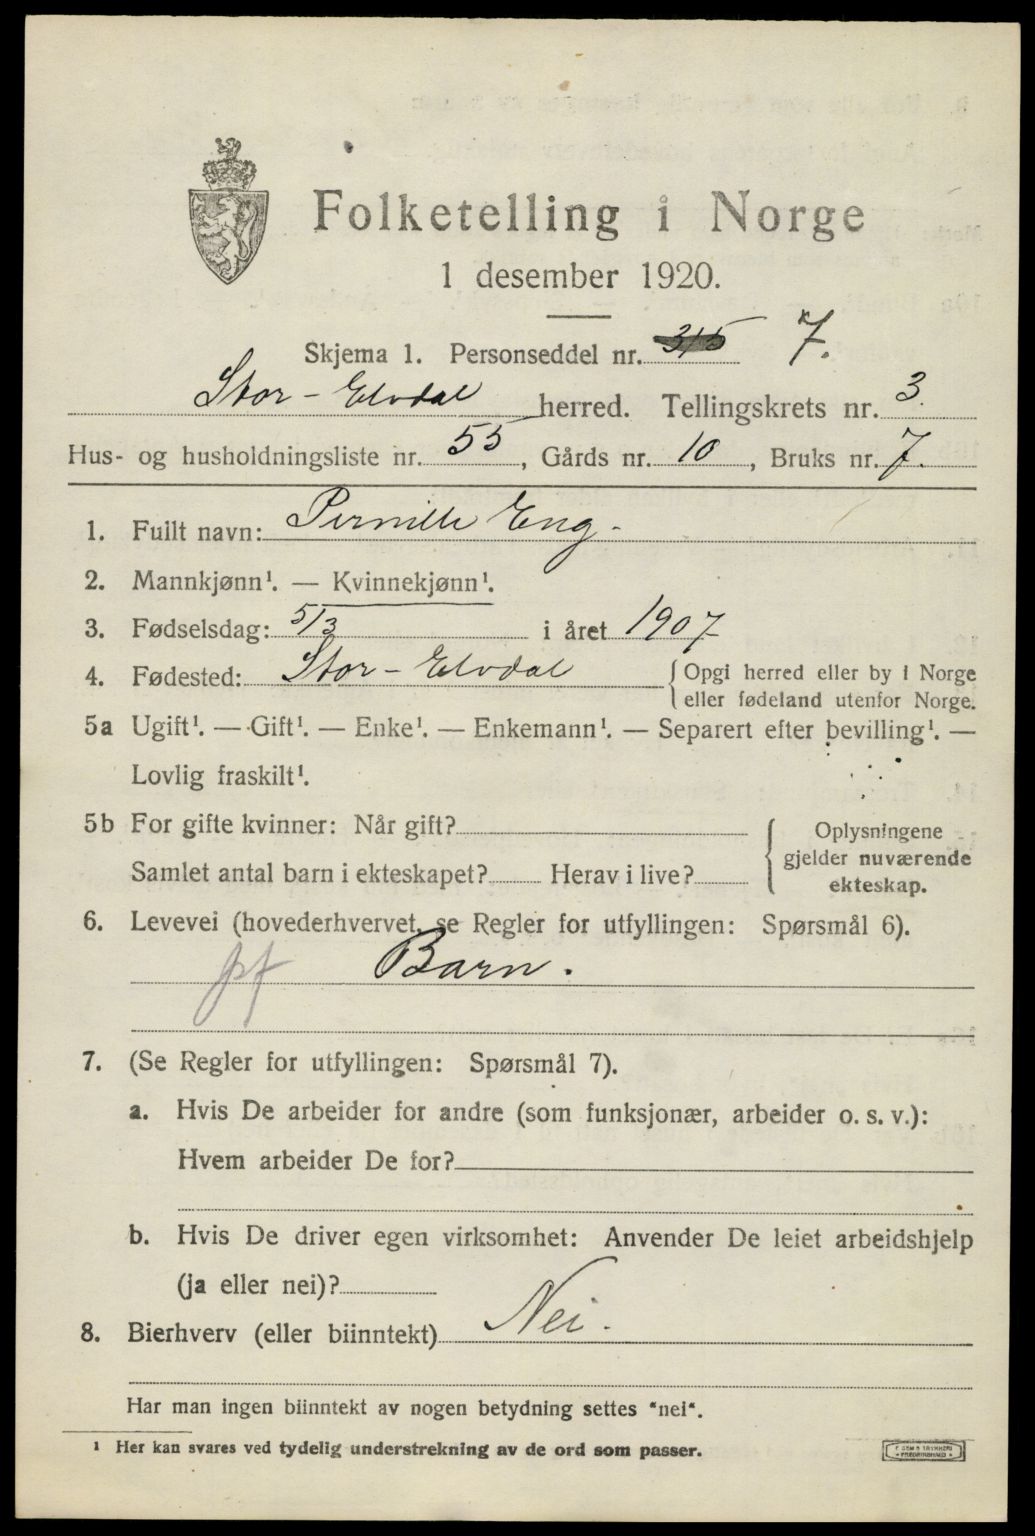 Folketelling i Norge
1 desember 1920.
Skjema 1. Personseddel nr. 315 7.
Stor-Elvdal herred. Tellingskrets nr. 3.
Hus- og husholdningsliste nr. 55, Gårds nr. 10, Bruks nr. 7.
1. Fullt navn: Pernille Eng.
2. Mannkjønn¹. — Kvinnekjønn¹.
3. Fødselsdag: 5/3 i året 1907
4. Fødested: Stor-Elvdal { Opgi herred eller by i Norge
eller fødeland utenfor Norge.
5a Ugift¹. — Gift¹. — Enke¹. — Enkemann¹. — Separert efter bevilling¹. —
Lovlig fraskilt¹.
5b For gifte kvinner: Når gift?
Samlet antal barn i ekteskapet? Herav i live?
{ Oplysningene
gjelder nuværende
ekteskap.
6. Levevei (hovederhvervet, se Regler for utfyllingen: Spørsmål 6).
pf Barn.
7. (Se Regler for utfyllingen: Spørsmål 7).
a. Hvis De arbeider for andre (som funksjonær, arbeider o. s. v.):
Hvem arbeider De for?
b. Hvis De driver egen virksomhet: Anvender De leiet arbeidshjelp
(ja eller nei)?
8. Bierhverv (eller biinntekt) Nei.
Har man ingen biinntekt av nogen betydning settes "nei".
¹ Her kan svares ved tydelig understrekning av de ord som passer.